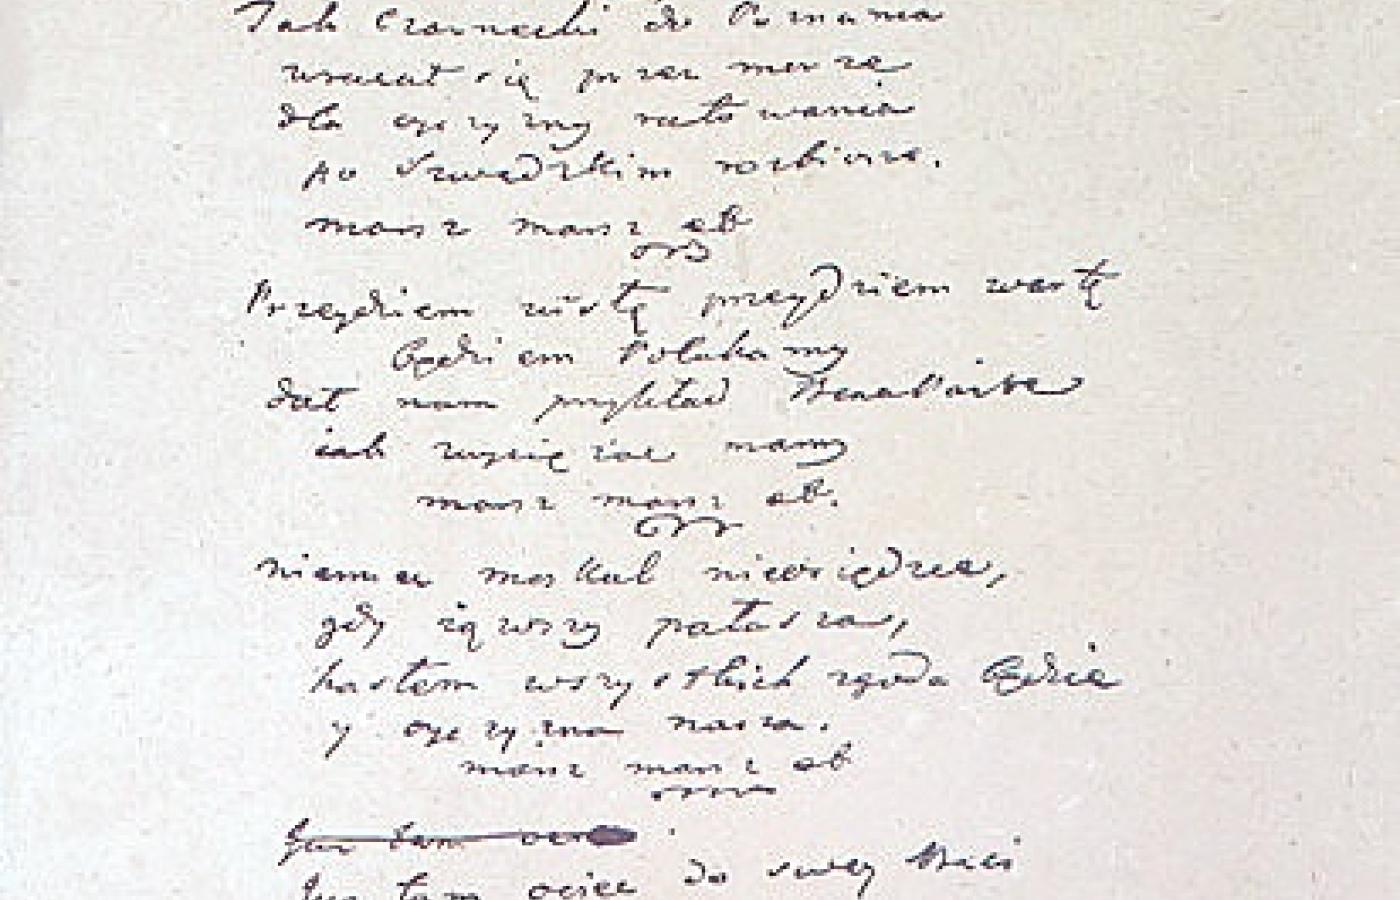 Jak Czarnecki do Poznania
wracał się przez morze
dla oyczyzny ratowania
po Szwedzkim rozbiorze.
marsz marsz etc
Przeydziem wisłę przeydziem wartę
będziem Polakamy
dał nam przykład Bonaparte
iak zwyciężac mamy
marsz marsz etc.
niemiec moskal nieosiędzie,
gdy iąwszy pałasza,
hasłem wszystkich zgoda będzie
y oyczyzna nasza.
marsz marsz etc
Jusz tam
Jusz tam ociec do swey Basi